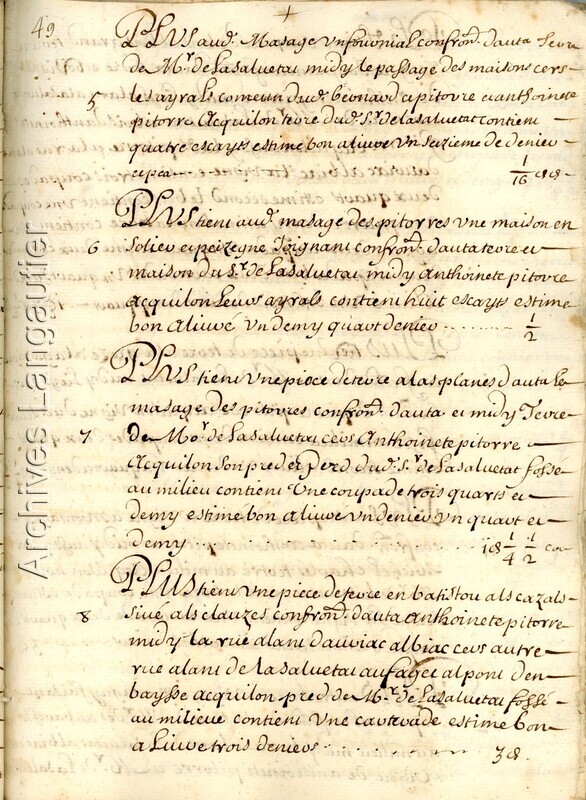 49
+
PLUS aud. Masage un fournial confron. d'auta Terre
de Mr. de Lasalvetat midy le passage des maisons cers
5 les ayrals comeun dud. bernard pitorre et anthoinete
pitorre Acquilon terre dud. Sr. de Lasalvetat contient
quatre escayts estime bon a livre un seizieme de denier
1/16
PLUS tient aud. masage des pitorres une maison en
6 solier et peizegne joignant confron. d'auta terre et
maison du Sr. de Lasalvetat midy Anthoinete pitorre
acquilon Leurs ayrals contient huit escayts estime
bon a livre Un demy quart denier .......... 1/2
PLUS tient Une piece de terre a las planes d'auta Le
masage des pitorres confron. d'auta et midy Terre
7 de Mr. de Lasalvetat cers Anthoinete pitorre
Acquilon son pred et pred dud. Sr. de Lasalvetat fosse
au milieu contient Une coupade trois quarts et
demy estime bon a livre Un denier Un quart et
demy .......... 1d 1/4 1/2
PLUS tient Une piece de terre en batistou als cazals
8 sive als clauzes confron. d'auta anthoinete pitorre
midy la rue alant d'auriac al biac cers autre
rue alant de la salvetat au faget al pont d'en
baysse acquilon pred de Mr. de Lasalvetat fossé
au milieu contient Une carterade estime bon
a Livre trois deniers .......... 3d.
Archives Langautier